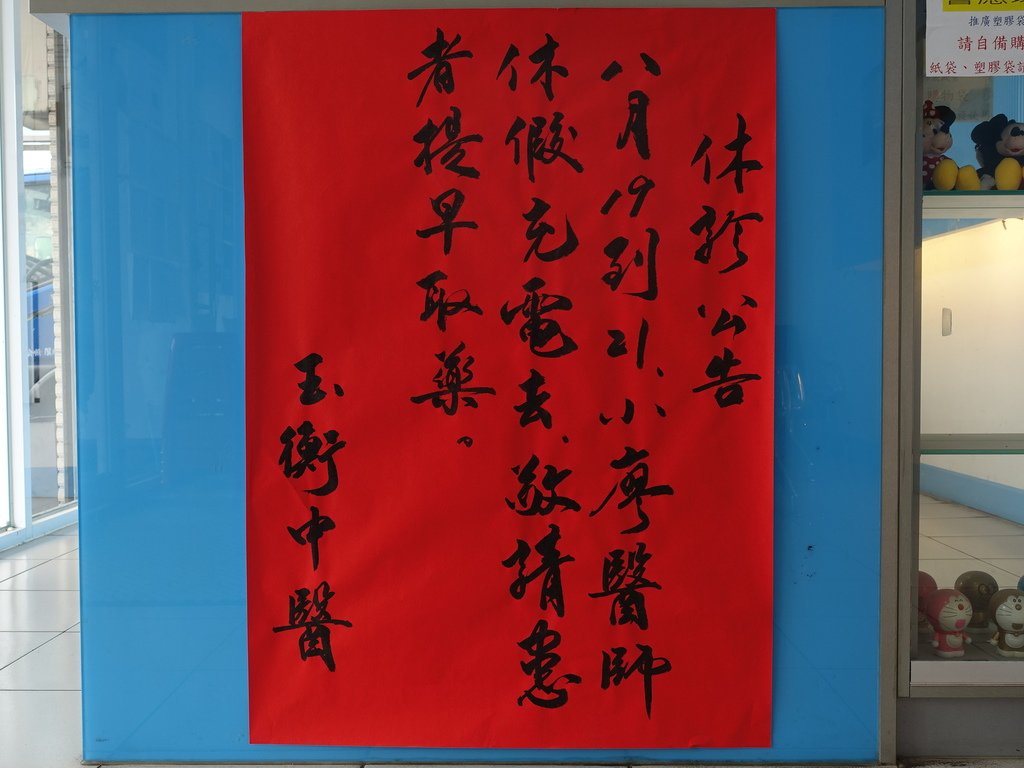 休診公告
八月19到21、小廖醫師
休假充電去、敬請患
者提早取藥。
玉衡中醫
推廣塑膠袋
請自備購
紙袋、塑膠袋請